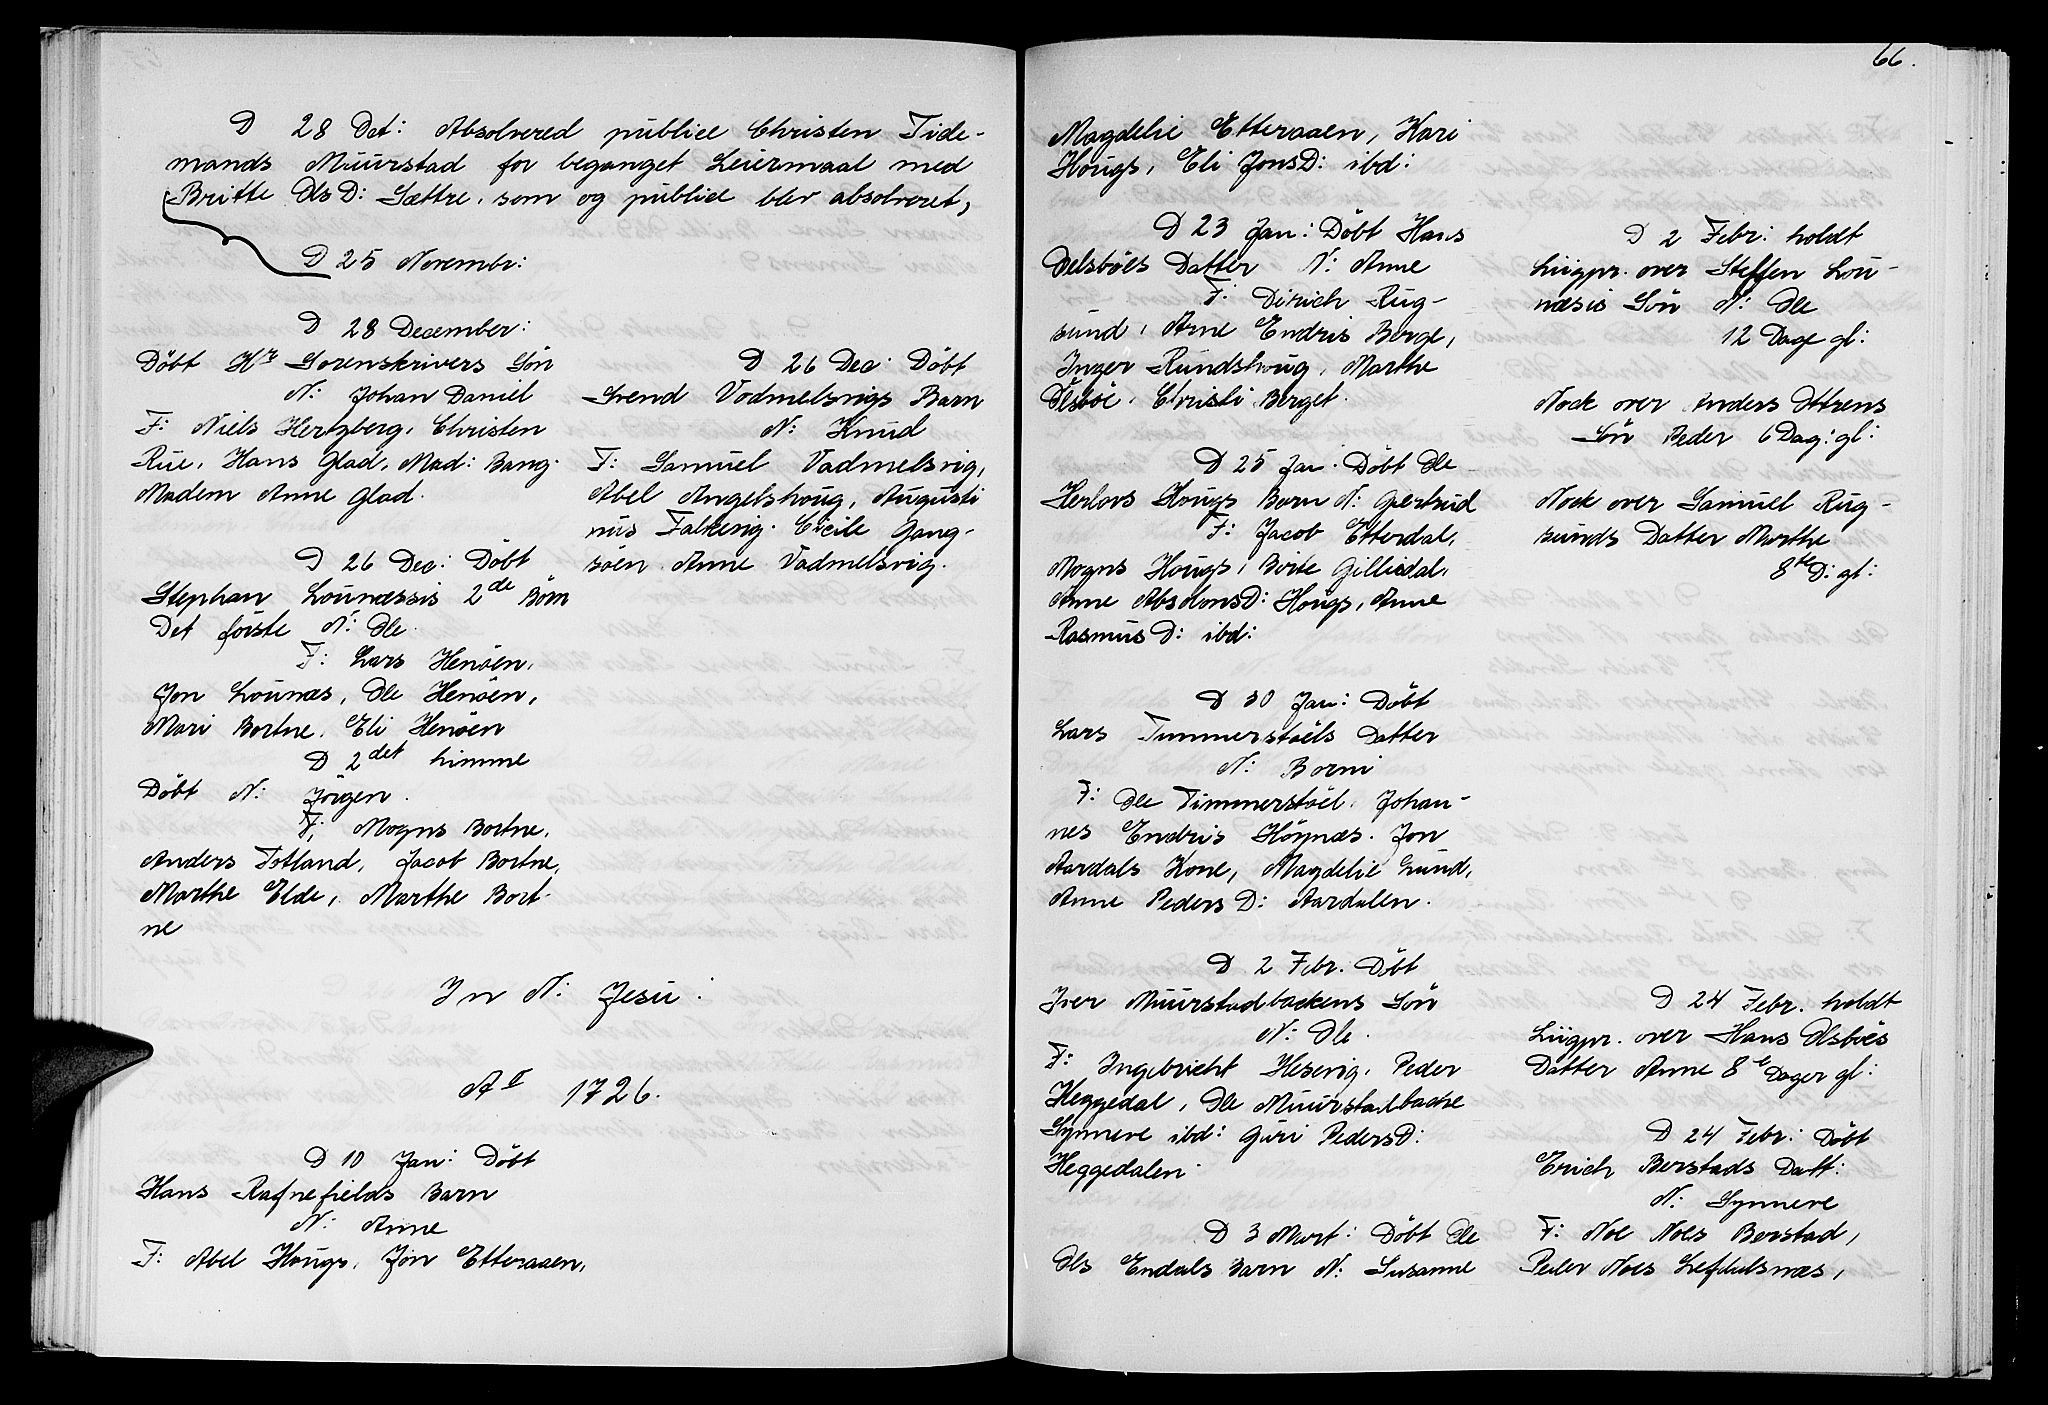 D 28 Oct: Absolvered publice Christen Tide-
mands Muurstad for beganget Leiermaal med
Britte OlsD: Sættre, som og publice blev absolveret,
D 25 Novembr:
D 28 December:
Döbt Hr Sorenskrivers Sön
N: Johan Daniel
F: Niels Hertzberg, Christen
Rue, Hans Glad, Mad: Bang.
Madem Anne Glad.
D 26 Dec: Döbt
Stephan Lounæssis 2de Börn
Det förste N: Ole.
F: Lars Henöen,
Jon Lounæs, Ole Henöen,
Mari Bortne, Eli Henöen
D 2det himme
Döbt N: Jörgen.
F: Mogns Bortne,
Anders Totland, Jacob Bortne,
Marthe Elde, Marthe Bort-
ne
D 26 Dec: Döbt
Svend Vadmelsvigs Barn
N: Knud
F: Samuel Vadmelsvig,
Abel Angelshoug, Augusti
nus Falkevig. Cicile Gang-
söen. Anne Vadmelsvig.
In N: Jesu:
Ao 1726.
D 10 Jan: Döbt
Hans Rafnefields Barn
N: Anne
F: Abel Hougs, Jon Etteraaen,
66.
Magdelie Etteraaen, Kari
Hougs, Eli JonsD: ibd:
D 23 Jan: Döbt Hans
Oelsböes Datter N: Anne
F: Dirich Rug-
sund, Arne Endris Berge,
Inger Rundshoug, Marthe
Olsböe, Christi Berget.
D 25 Jan. Döbt Ole
Herlovs Hougs Barn N: Giertrud
F: Jacob Etterdal,
Mogns Hougs, Brite Gilliedal,
Anne AbsolonsD: Hougs, Anne
RasmusD: ibd:
D 30 Jan: Döbt
Lars Timmerstöels Datter
N: Borni
F: Ole Timmerstöel. Johan-
nes Endris Höynæs. Jon
Aardals Kone, Magdelie Lund,
Anne PedersD: Aardalen.
D 2 Febr. Döbt
Iver Muurstadbackens Sön
N: Ole.
F: Ingebricht Hesevig, Peder
Heggedal, Ole Muurstadbacke
Synneve ibd: Guri PedersD:
Heggedalen.
D 3 Mart: Döbt Ole
Ols Endals Barn N: Susanne
D 2 Febr: holdt
Liigpr. over Steffen Lou-
næsis Sön N: Ole
12 Dage gl:
Nock over Anders Ottrens
Sön Peder 6 Dag: gl:
Nock over Samuel Rug-
sunds Datter Marthe
8te D: gl:
D 24 Febr. holdt
Liigpr. over Hans Olsböes
Datter Anne 8te Dager gl:
D 24 Febr: Döbt
Erich Berstads Datt:
N: Synneve
F: Noe Noes Berstad,
Peder Noes Lefdalsnæs,